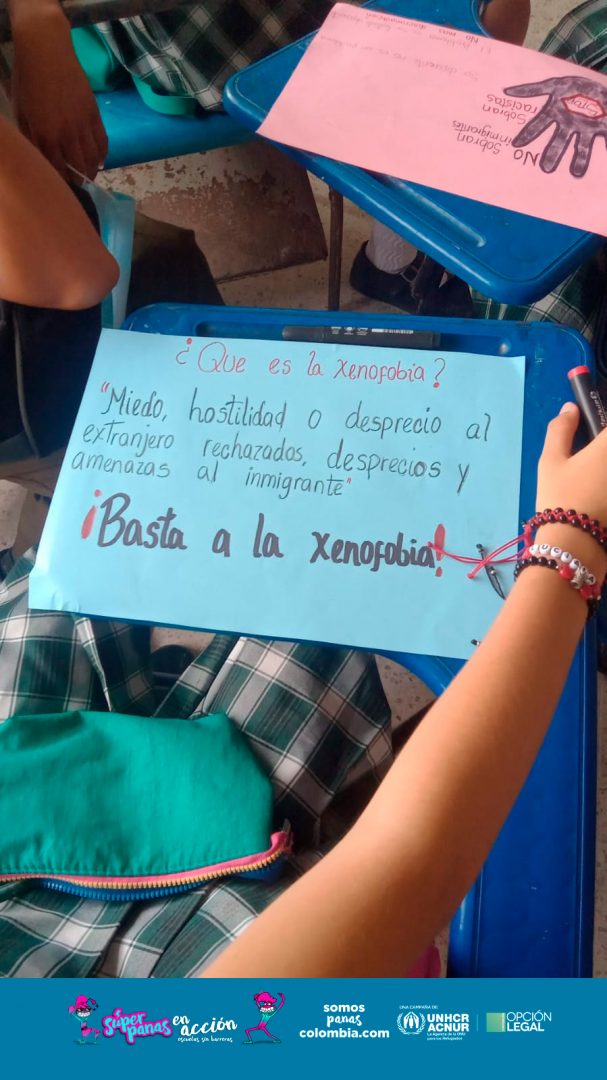 No Sobran
inmigrantes
Sobran
racistas
STOP
Ser diferente no es un problema
El problema es ser
No mas discriminación
¿Que es la xenofobia?
"Miedo, hostilidad o desprecio al
extranjero rechazados, desprecios y
amenazas al inmigrante"
¡Basta a la xenofobia!
Súper panas en acción
escuelas sin barreras
somos
panas
colombia.com
UNA CAMPAÑA DE:
UNHCR
ACNUR
La Agencia de la ONU
para los Refugiados
OPCIÓN
LEGAL